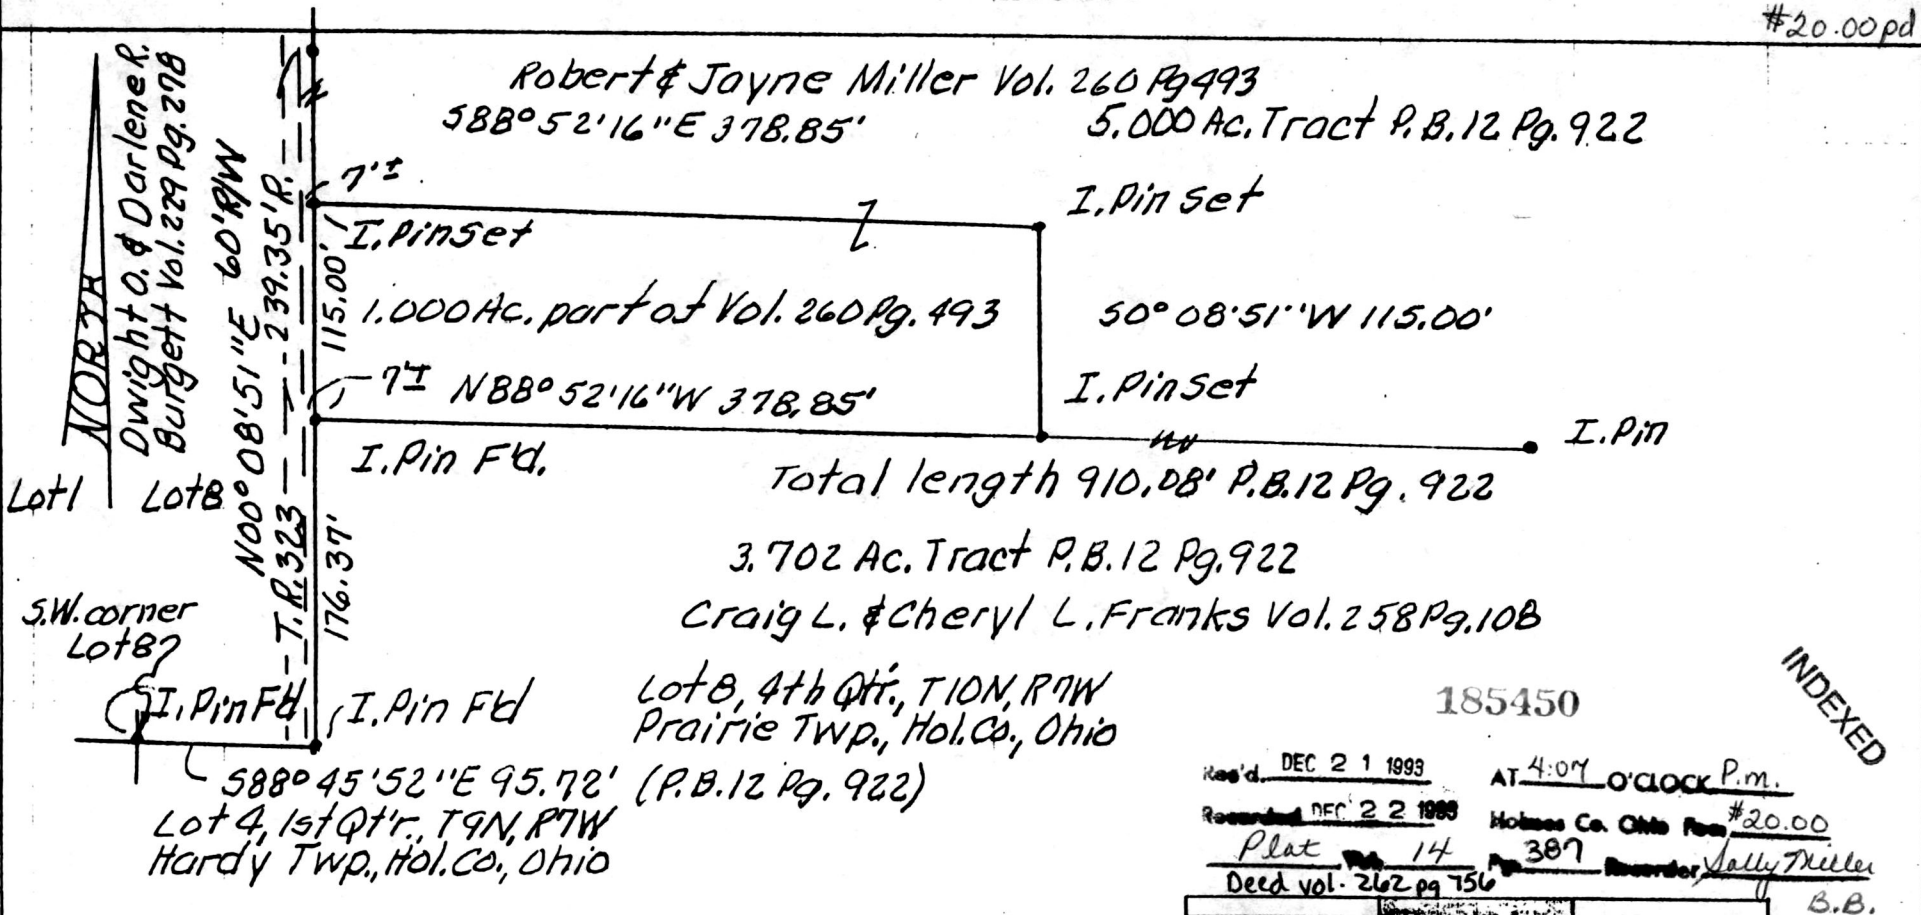 #20.00pd
Robert & Jayne Miller Vol. 260 Pg493
S88° 52'16"E 378.85'
5.000 Ac. Tract P.B. 12 Pg. 922
NORTH
Dwight O. & Darlene R.
Burgett Vol. 229 Pg. 278
N00° 08'51"E 60' R/W
T.R. 323
239.35' R.
7'±
I. Pin Set
I. Pin Set
115.00'
1.000 Ac. part of Vol. 260 Pg. 493
S0° 08'51"W 115.00'
7'± N88° 52'16"W 378.85'
I. Pin Set
I. Pin
I. Pin F'd.
Total length 910.08' P.B. 12 Pg. 922
Lot 1
Lot 8
176.37'
3.702 Ac. Tract P.B. 12 Pg. 922
Craig L. & Cheryl L. Franks Vol. 258 Pg. 108
S.W. corner
Lot 8
I. Pin F'd
I. Pin F'd
Lot 8, 4th Qtr., T10N, R7W
Prairie Twp., Hol. Co., Ohio
(P.B. 12 Pg. 922)
S88° 45'52"E 95.72'
Lot 4, 1st Qt'r., T9N, R7W
Hardy Twp., Hol. Co., Ohio
185450
INDEXED
Rec'd. DEC 21 1993 AT 4:07 O'CLOCK P.m.
Recorded DEC 22 1993 Holmes Co. Ohio Fee #20.00
Plat Vol. 14 Pg. 387 Recorder Sally Miller
Deed vol. 262 pg 756
B.B.